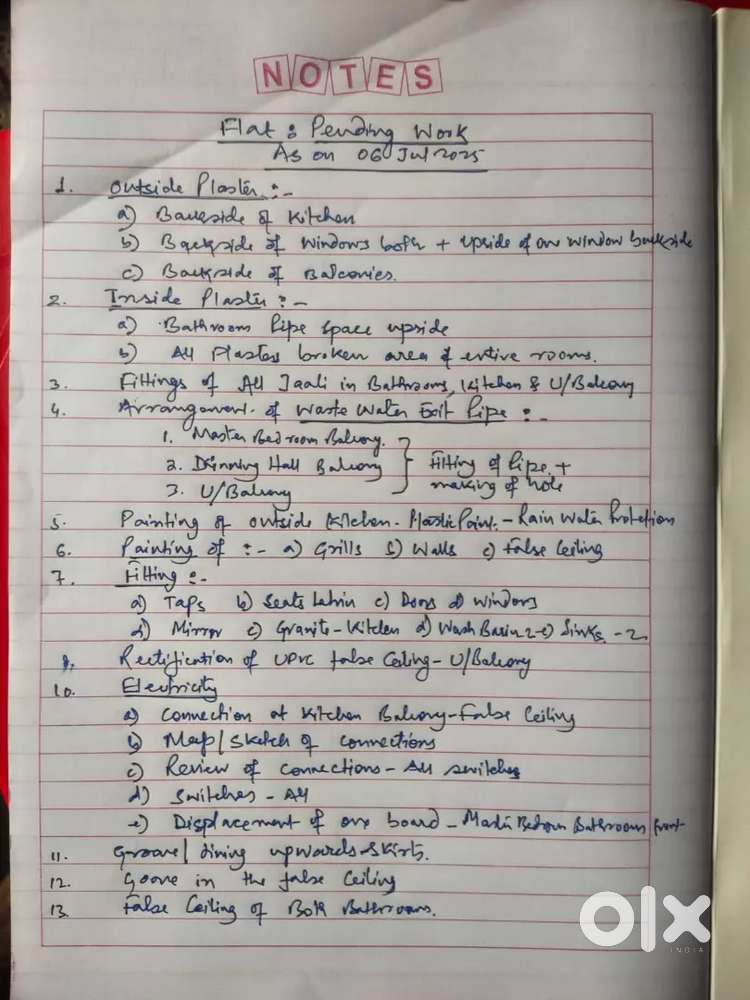 NOTES
Flat : Pending Work
As on 06 Jul 2025
1. Outside Plaster :-
a) Backside of Kitchen
b) Backside of Windows both + upside of one window backside
c) Backside of Balconies.
2. Inside Plaster :-
a) Bathroom Pipe space upside
b) All Plaster broken area of entire rooms.
3. Fittings of All Jaali in Bathrooms, Kitchen & U/Balcony
4. Arrangement of Waste Water Exit Pipe :-
1. Master Bedroom Balcony.
2. Dinning Hall Balcony
3. U/Balcony
Fitting of Pipe +
making of hole
5. Painting of outside Kitchen - Plastic Paint - Rain Water Protection
6. Painting of :- a) Grills b) Walls c) False Ceiling
7. Fitting :-
a) Taps b) Seats Latrin c) Doors d) Windows
d) Mirror c) Granite - Kitchen d) Wash Basin 2 - e) Sinks - 2
9. Rectification of UPVC false Ceiling - U/Balcony
10. Electricity
a) Connection at Kitchen Balcony - False Ceiling
b) Map/Sketch of connections
c) Review of connections - All switches
d) Switches - All
e) Displacement of one board - Master Bedroom Bathroom front
11. Groove/ dining upwards skirts.
12. Goove in the false Ceiling
13. False Ceiling of Both Bathrooms.
olx
INDIA